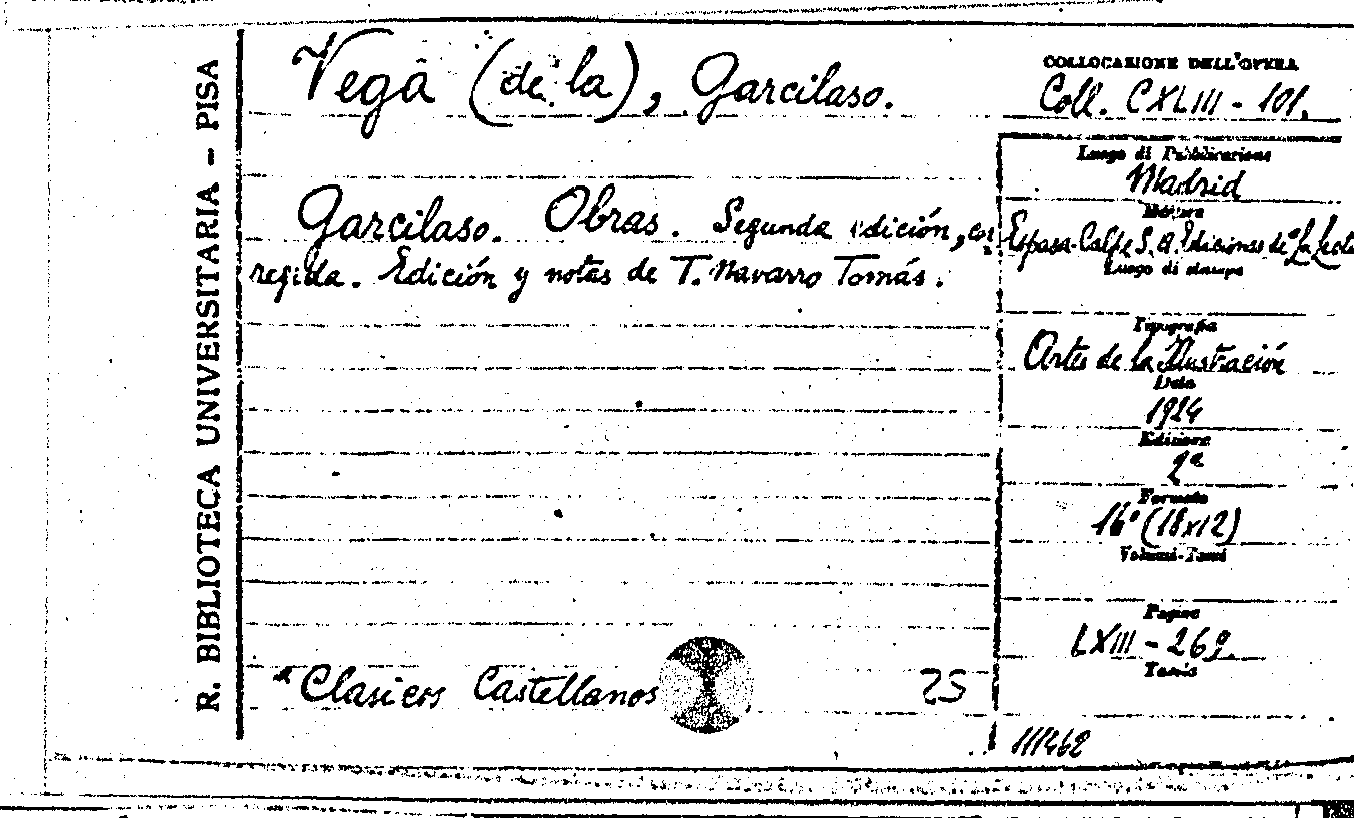 R. BIBLIOTECA UNIVERSITARIA - PISA
Vega (de la), Garcilaso.
COLLOCAZIONE DELL'OPERA
Coll. CXLIII - 101.
Garcilaso. Obras. Segunda edición, cor
regida. Edición y notas de T. Navarro Tomás.
Luogo di Pubblicazione
Madrid
Espasa-Calpe S. A. Ediciones de "La Lectu
Luogo di stampa
Tipografia
Artes de la Ilustración
Data
1924
Edizione
2ª
Formato
16° (18x12)
Volumi-Tomi
Pagine
LXIII - 269.
"Clasicos Castellanos
25
111462